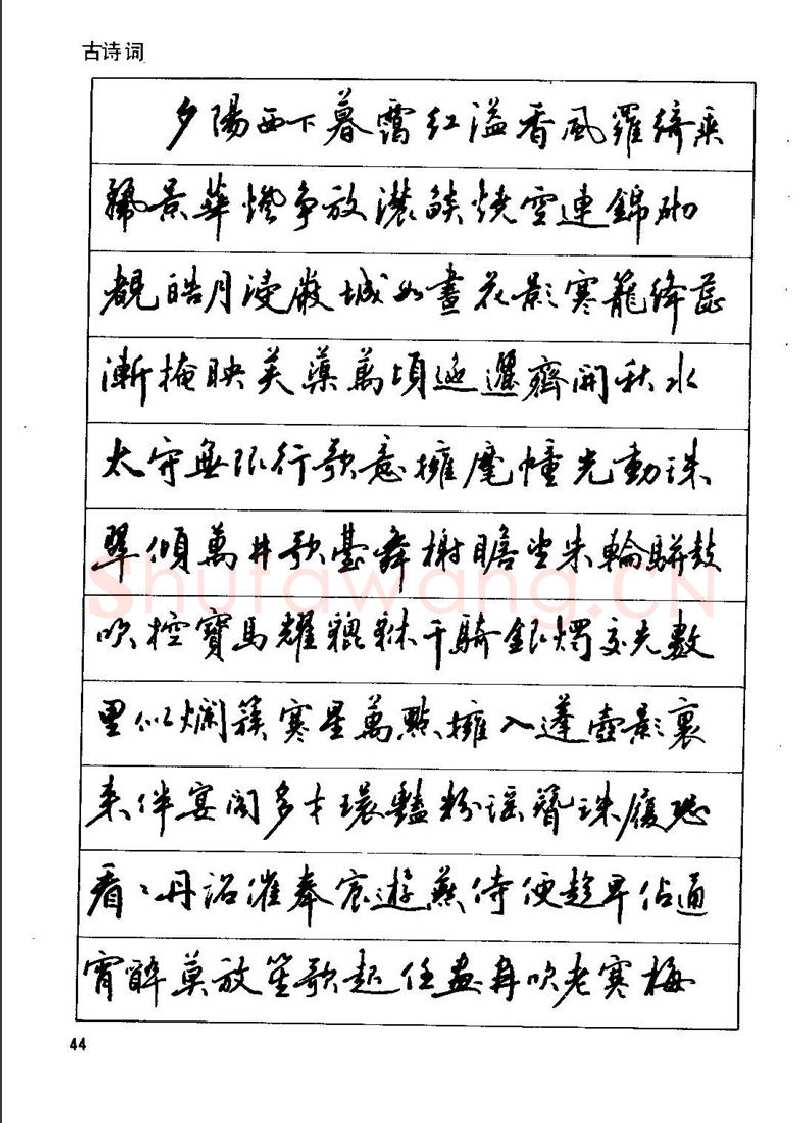 古诗词
夕陽西下暮靄紅溢香風羅綺乘
麗景華燈争放濃燄燒空連錦砌
覩皓月浸嚴城如畫花影寒籠絳蕊
漸掩映芙蕖萬頃迤邐齊開秋水
太守無限行歌意擁麾幢光動珠
翠傾萬井歌臺舞榭瞻望朱輪駢鼓
吹控寶馬耀貔貅千騎銀燭交光數
里似爛簇寒星萬點擁入蓬壺影裏
來伴宴閣多才環豔粉瑤簪珠履恐
看看丹詔催奉宸遊燕侍便趁早佔通
宵醉莫放笙歌起任畫角吹老寒梅
44
Shufawang.CN